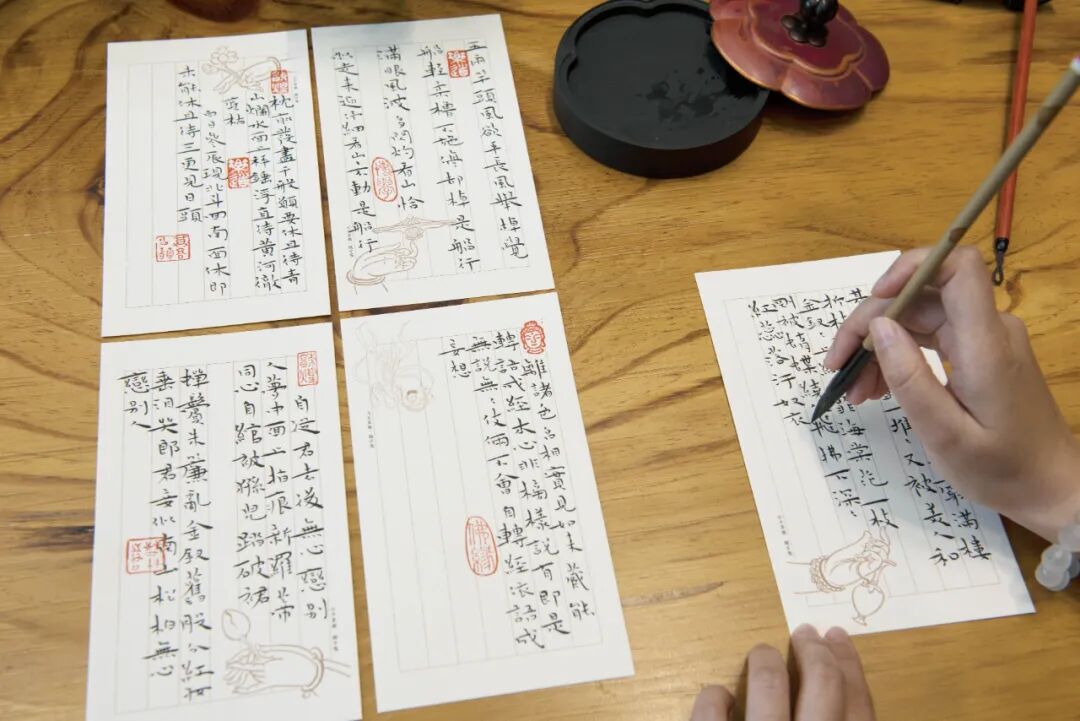 枕前發盡千般願要休且待青
山爛水面上秤錘浮直待黃河徹
底枯
白日參辰現北斗回南面休即
未能休且待三更見日頭
敦煌
五兩竿頭風欲平長風舉棹覺
船輕柔櫓不施停卻棹是船行
滿眼風波多閃灼看山恰
似走來迎仔細看山々不動是船行
自從君去後無心戀別
人夢中面上指痕新羅帶
同心自綰被猻兒蹋破裙
蟬鬢朱簾亂金釵舊股分紅妝
垂淚哭郎君妾似南山松柏無心
戀別人
敦煌
離諸色名相實見如來藏能
轉語成經本心非
樣說有即是
無說無々伎倆不會自轉經依語成
妄想
滿樓
堆々又被美人和
金釵
海棠花一枝
拂下深
紅蕊落汙奴衣